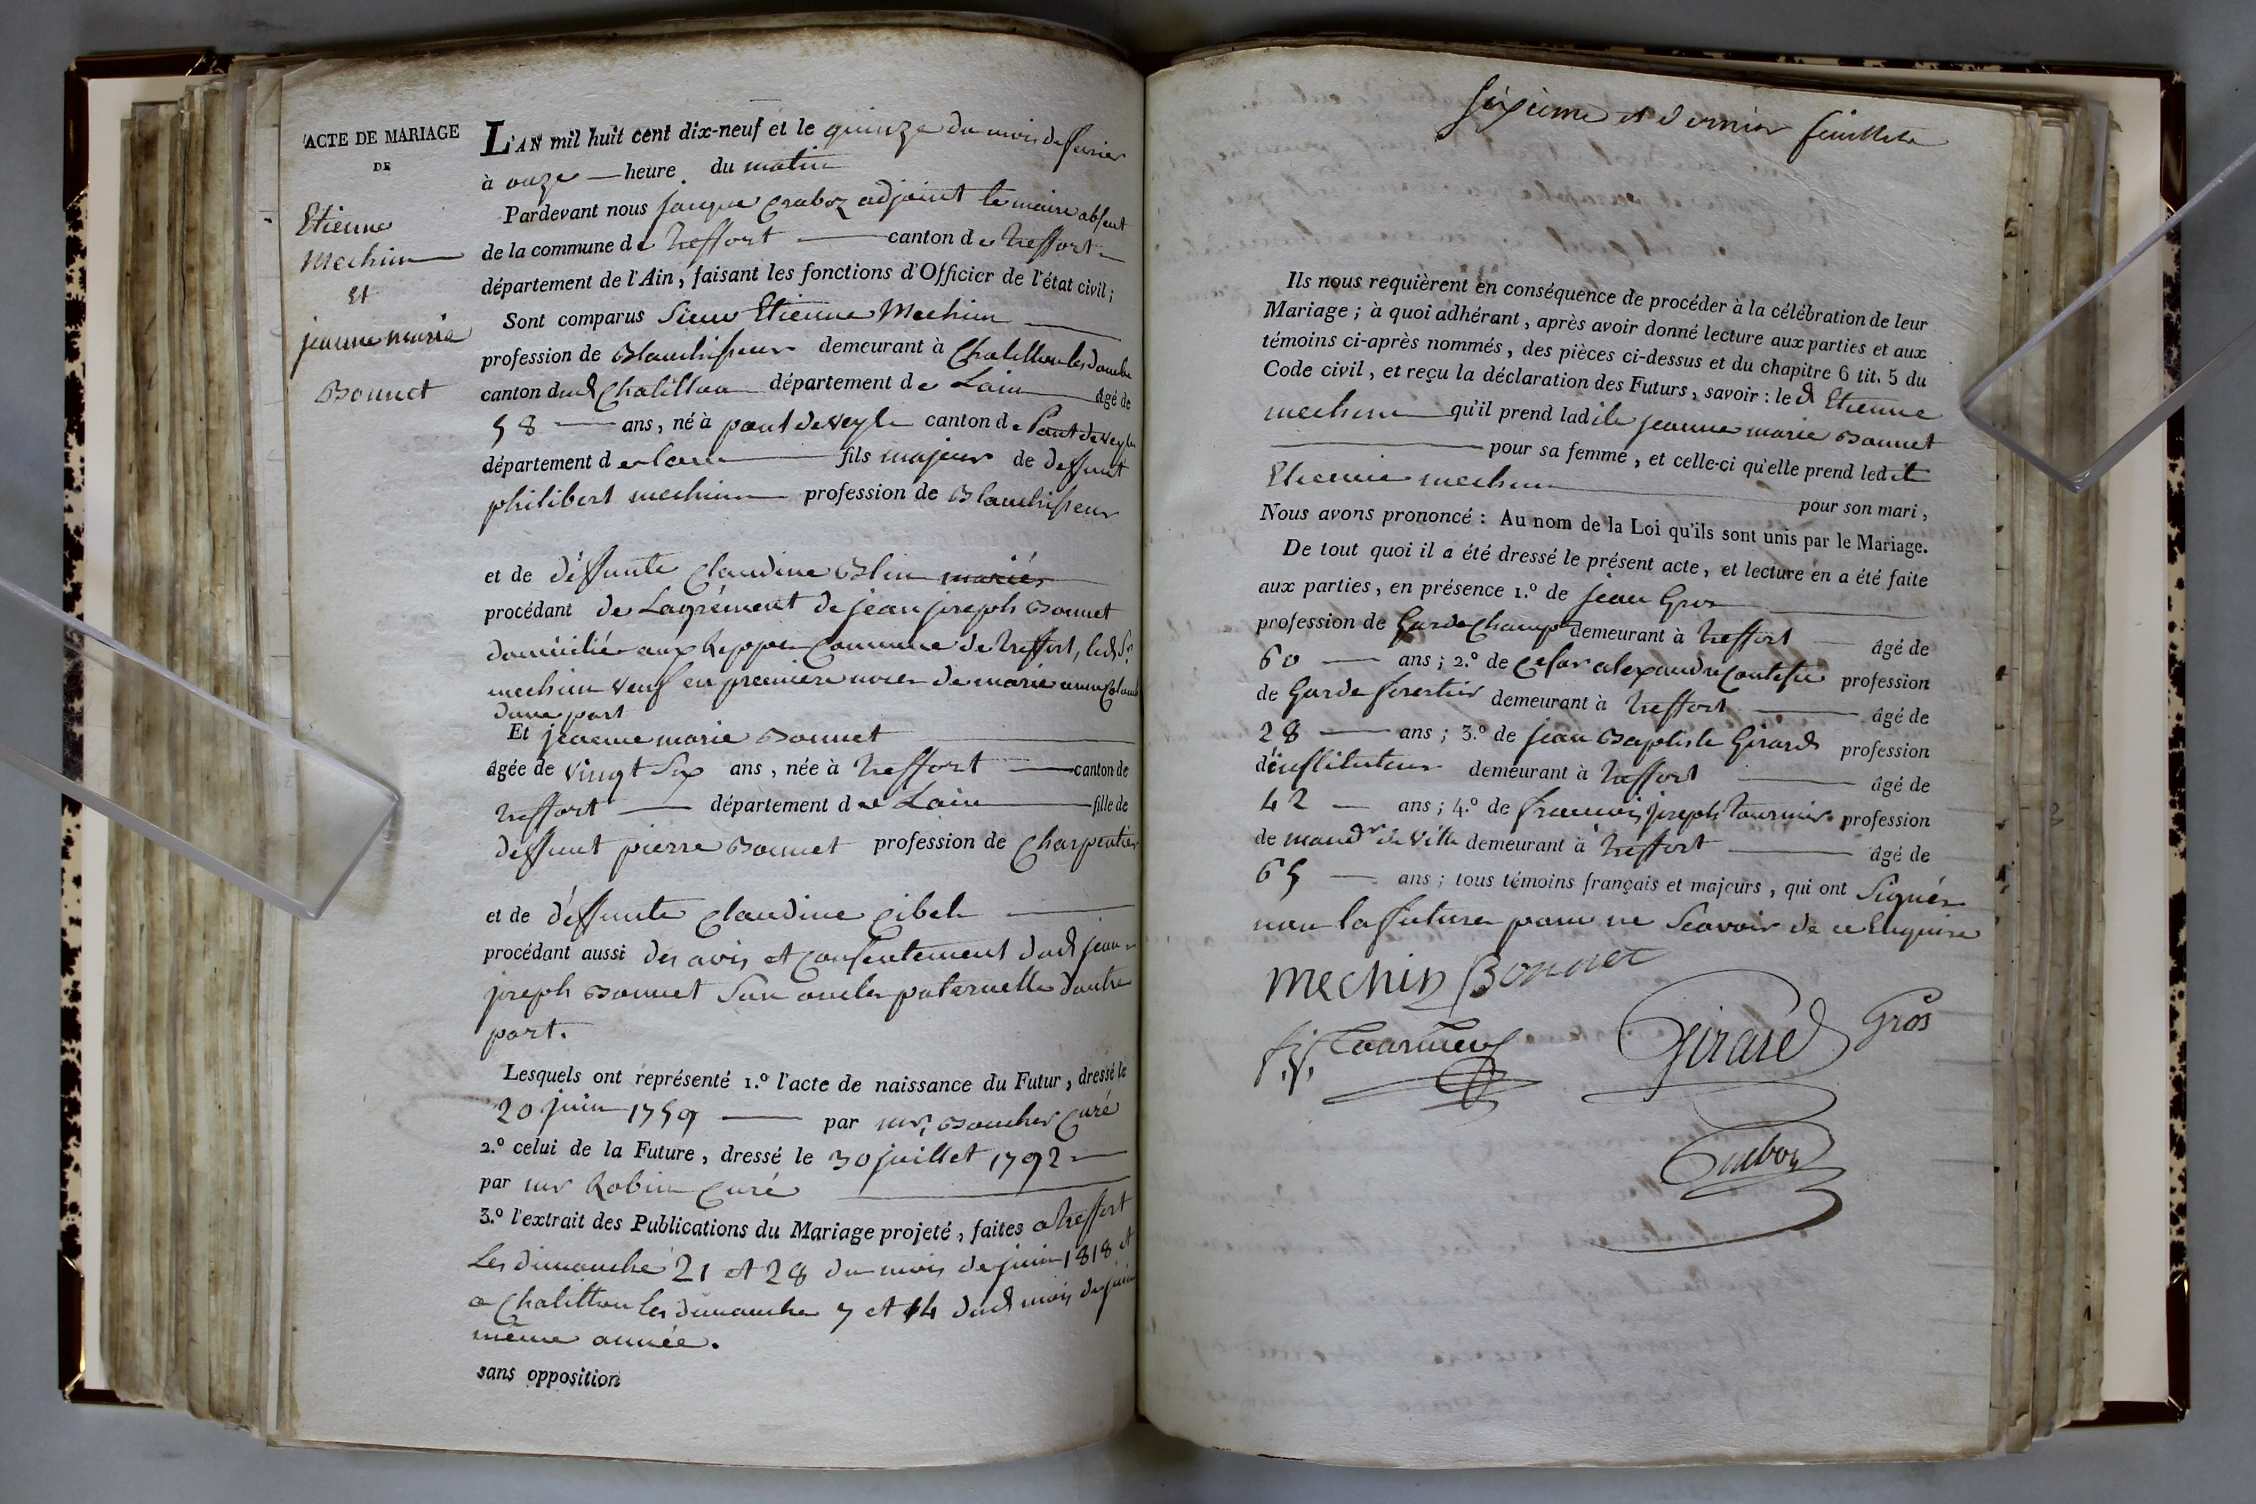 ACTE DE MARIAGE
DE
Etienne
Mechin
Et
jeanne marie
Bonnet
L'AN mil huit cent dix-neuf et le quinze du mois de fevrier
à onze heure du matin
Pardevant nous jaque Craboz adjoint le maire absent
de la commune de treffort canton de treffort
département de l'Ain, faisant les fonctions d'Officier de l'état civil;
Sont comparus Sieur Etienne Mechin
profession de Blanchisseur demeurant à Chatillon les dombe
canton dud Chatillon département de Lain âgé de
58 ans, né à pont de veyle canton de Pont de veyle
département de lain fils majeur de deffunt
philibert mechin profession de Blanchisseur
et de déffunte Claudine Blin mariés
procédant de Lagrément de jean joseph Bonnet
domicilié aux Reppe Commune de treffort, led Sr
mechin veuf en premiere noces de marie anne
dune part
Et jeanne marie Bonnet
âgée de vingt Six ans, née à treffort canton de
treffort département de Lain fille de
deffunt pierre Bonnet profession de Charpentier
et de déffunte Claudine Cibel
procédant aussi des avis et Consentement dud jean
joseph Bonnet Son oncle paternelle dautre
part.
Lesquels ont représenté 1.º l'acte de naissance du Futur, dressé le
20 juin 1759 par mr. Boucher Curé
2.º celui de la Future, dressé le 30 juillet 1792
par mr Robin Curé
3.º l'extrait des Publications du Mariage projeté, faites a treffort
Les dimanche 21 et 28 du mois de juin 1818 et
a Chatillon les dimanche 7 et 14 dud mois de juin
même année.
sans opposition
sixieme et dernier feuillet
Ils nous requièrent en conséquence de procéder à la célébration de leur
Mariage; à quoi adhérant, après avoir donné lecture aux parties et aux
témoins ci-après nommés, des pièces ci-dessus et du chapitre 6 tit. 5 du
Code civil, et reçu la déclaration des Futurs, savoir: le d Etienne
mechin qu'il prend ladite jeanne marie Bonnet
pour sa femme, et celle-ci qu'elle prend ledit
Etienne mechin pour son mari,
Nous avons prononcé: Au nom de la Loi qu'ils sont unis par le Mariage.
De tout quoi il a été dressé le présent acte, et lecture en a été faite
aux parties, en présence 1.º de jean Gros
profession de Garde Champe demeurant à treffort âgé de
60 ans; 2.º de Cesar alexandre profession
de Garde forestier demeurant à treffort âgé de
28 ans; 3.º de jean Baptiste Girard profession
d'institituteur demeurant à treffort âgé de
42 ans; 4.º de francois joseph tournier profession
de mandr de ville demeurant à treffort âgé de
65 ans; tous témoins français et majeurs, qui ont Signés
non la future pour ne Scavoir de ce Enquise
Mechin Bonnet
f.j. tournier Girard Gros
Craboz